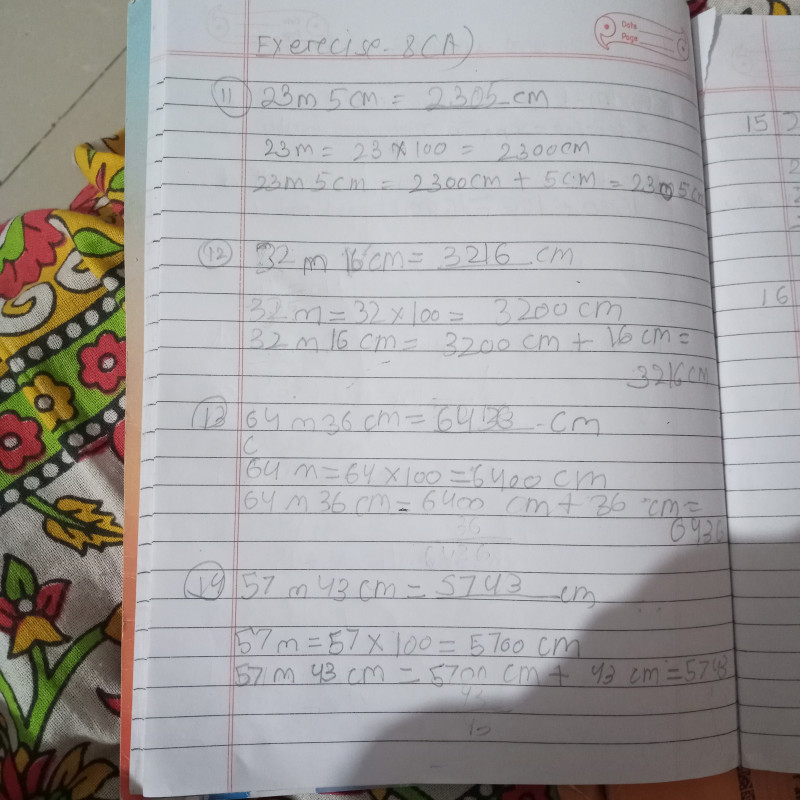 Date
Page
Exercise - 8(A)
11 23m 5cm = 2305 cm
23m = 23 × 100 = 2300cm
23m 5cm = 2300cm + 5cm = 23m 5cm
12 32 m 16cm = 3216 cm
32 m = 32 × 100 = 3200 cm
32 m 16 cm = 3200 cm + 16 cm =
3216cm
13 64 m 36 cm = cm
C
64 m = 64 × 100 = 6400 cm
64 m 36 cm = 6400 cm + 36 cm =
6436
36
6436
14 57 m 43 cm = 5743 cm
57 m = 57 × 100 = 5700 cm
57 m 43 cm = 5700 cm + 43 cm = 5743
15 2
16